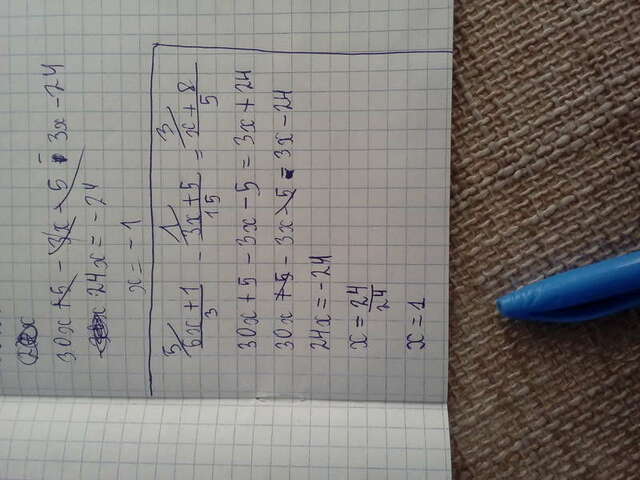 30x + 5 - 3x - 5 - 3x - 24
24x = -24
x = -1
5 1 3
6x + 1 / 3 - 3x + 5 / 15 = x + 8 / 5
30x + 5 - 3x - 5 = 3x + 24
30x + 5 - 3x - 5 - 3x - 24
24x = -24
x = 24 / 24
x = 1